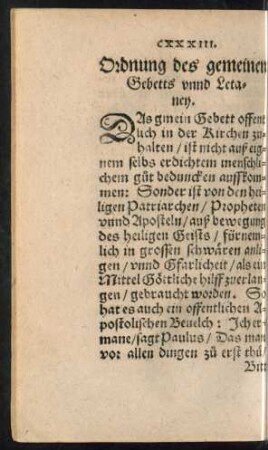 CXXXIII.
Ordnung des gemeinen
Gebetts vnnd Leta-
ney.
DAs gmein Gebett offent
lich in der Kirchen zu-
halten / ist nicht auß eig-
nem selbs erdichtem menschli-
chem gůt beduncken auffkom-
men: Sonder ist von den hei-
ligen Patriarchen / Propheten
vnnd Aposteln / auß bewegung
des heiligen Geists / fürnem-
lich in grossen schwären anli-
gen / vnnd Gfarlicheit / als ein
Mittel Göttliche hilff zuerlan-
gen / gebraucht worden. So
hat es auch ein offentlichen A-
postolischen Beuelch: Ich er-
mane / sagt Paulus / Das man
vor allen dingen zů erst thů /
Bitt